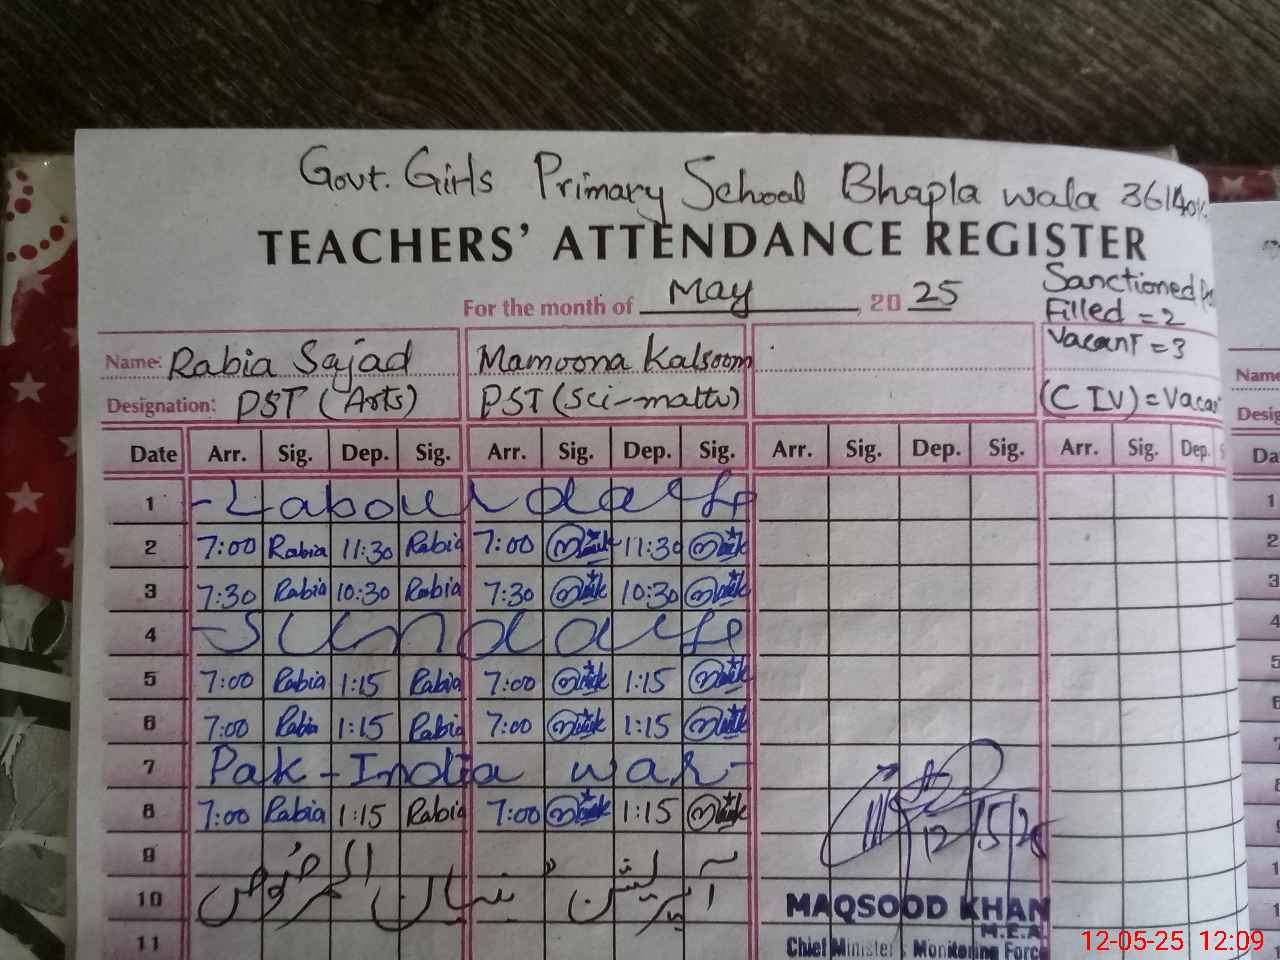 Govt. Girls Primary School Bhapla wala
TEACHERS' ATTENDANCE REGISTER
For the month of May, 2025
Sanctioned
Filled = 2
Vacant = 3
Name: Rabia Sajad Mamoona Kalsoom
Designation: PST (Arts) PST (Sci-math) (C IV) = Vacan
Date Arr. Sig. Dep. Sig. Arr. Sig. Dep. Sig. Arr. Sig. Dep. Sig. Arr. Sig. Dep. S
1 - Labour day
2 7:00 Rabia 11:30 Rabia 7:00 11:30
3 7:30 Rabia 10:30 Rabia 7:30 10:30
4 - Sunday
5 7:00 Rabia 1:15 Rabia 7:00 1:15
6 7:00 Rabia 1:15 Rabia 7:00 1:15
7 Pak - India war -
8 7:00 Rabia 1:15 Rabia 7:00 1:15
12/5/25
9
10 آپریشن بنیان المرصوص
11
MAQSOOD KHAN
M.E.A.
Chief Minister's Monitoring Force
Name
Desig
Da
1
2
3
4
5
6
7
8
12-05-25 12:09